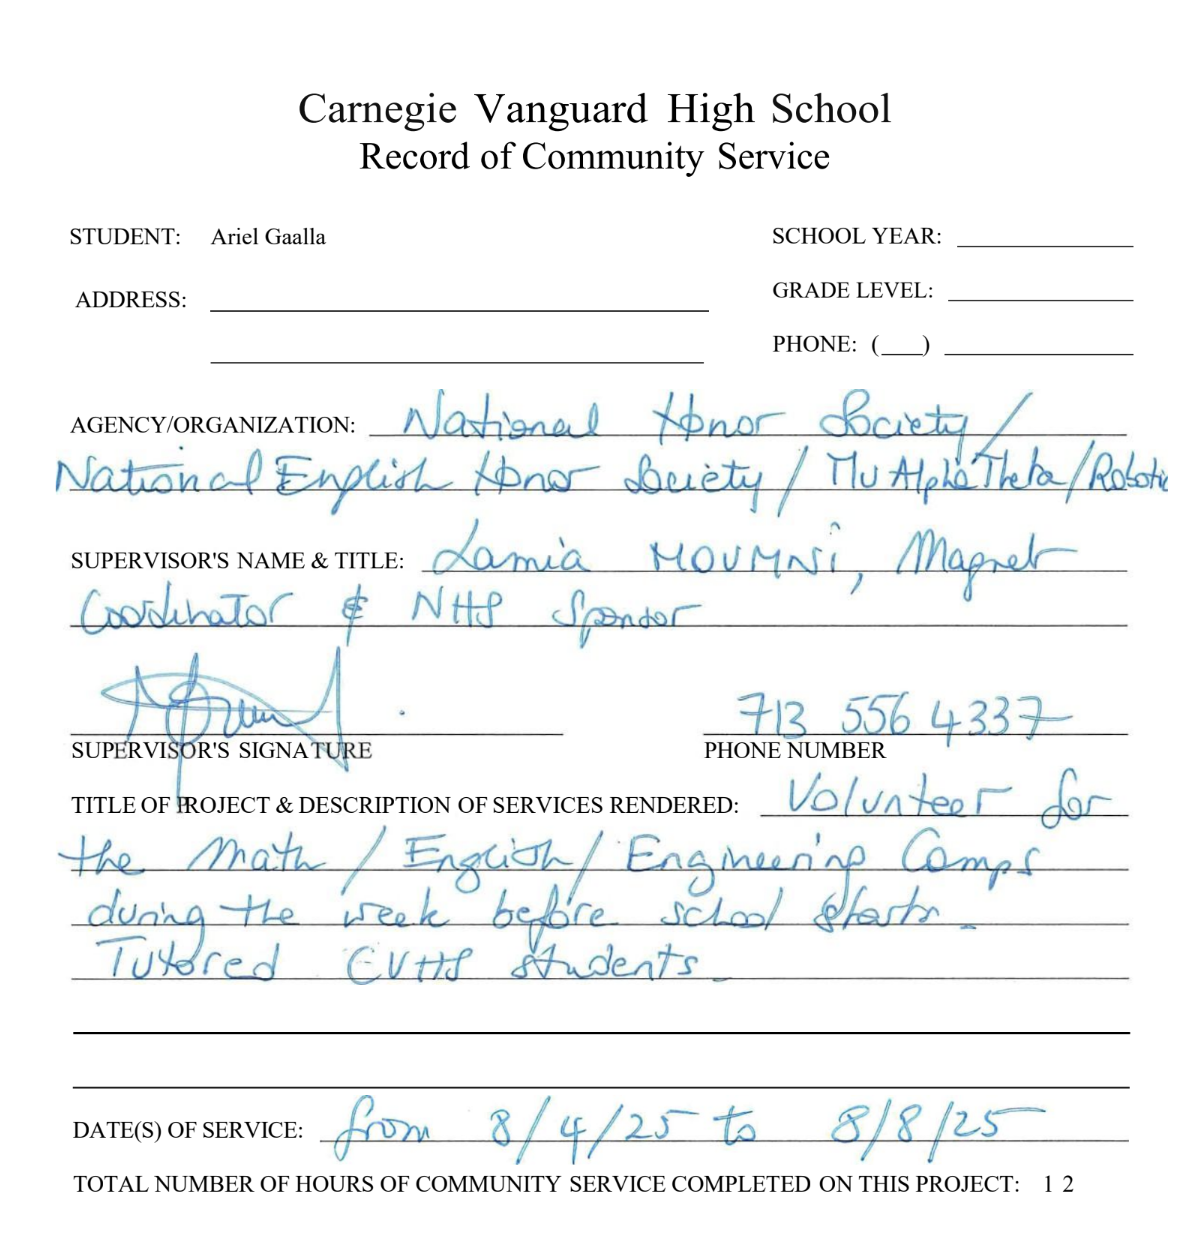 Carnegie Vanguard High School
Record of Community Service
STUDENT: Ariel Gaalla SCHOOL YEAR:
ADDRESS: GRADE LEVEL:
PHONE: ( )
AGENCY/ORGANIZATION: National Honor Society /
National English Honor Society / Mu Alpha Theta / Robotic
SUPERVISOR'S NAME & TITLE: Lamia MOUMNi, Magnet
Coordinator & NHS Sponsor
713 556 4337
SUPERVISOR'S SIGNATURE PHONE NUMBER
TITLE OF PROJECT & DESCRIPTION OF SERVICES RENDERED: Volunteer for
the Math / English / Engineering Camps
during the week before school starts.
Tutored CVHS students.
DATE(S) OF SERVICE: from 8/4/25 to 8/8/25
TOTAL NUMBER OF HOURS OF COMMUNITY SERVICE COMPLETED ON THIS PROJECT: 1 2